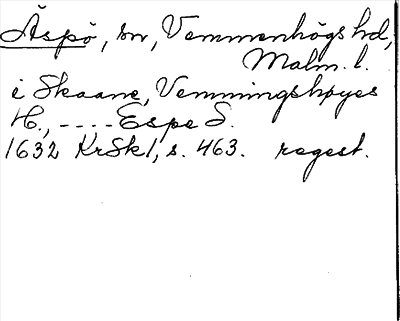 Äspö, sn, Vemmenhögs hd,
Malm. l.
i Skaane, Vemmingshøyes
H., ---- Espe S.
1632 KrSkl, s. 463. regest.